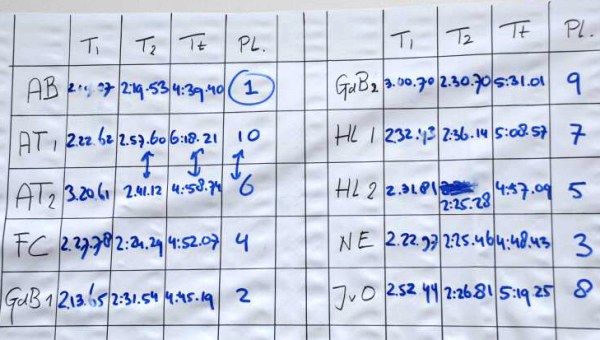 T1 T2 Tt PL. T1 T2 Tt PL.
AB 2:19.53 4:39.40 1 GaB2 3.00.70 2:30.70 5:31.01 9
AT1 2.22.62 2.57.60 6:18.21 10 HL1 2:36.14 5:08.57 7
AT2 3.20.61 2.41.12 4:58.74 6 HL2 2.31.81 2:25.28 4:57.09 5
FC 2.27.78 2:24.29 4:52.07 4 NE 2.22.97 2:25.46 4:48.43 3
GaB1 2.13.65 2:31.54 4:45.19 2 JvO 2.52.44 2:26.81 5:19.25 8